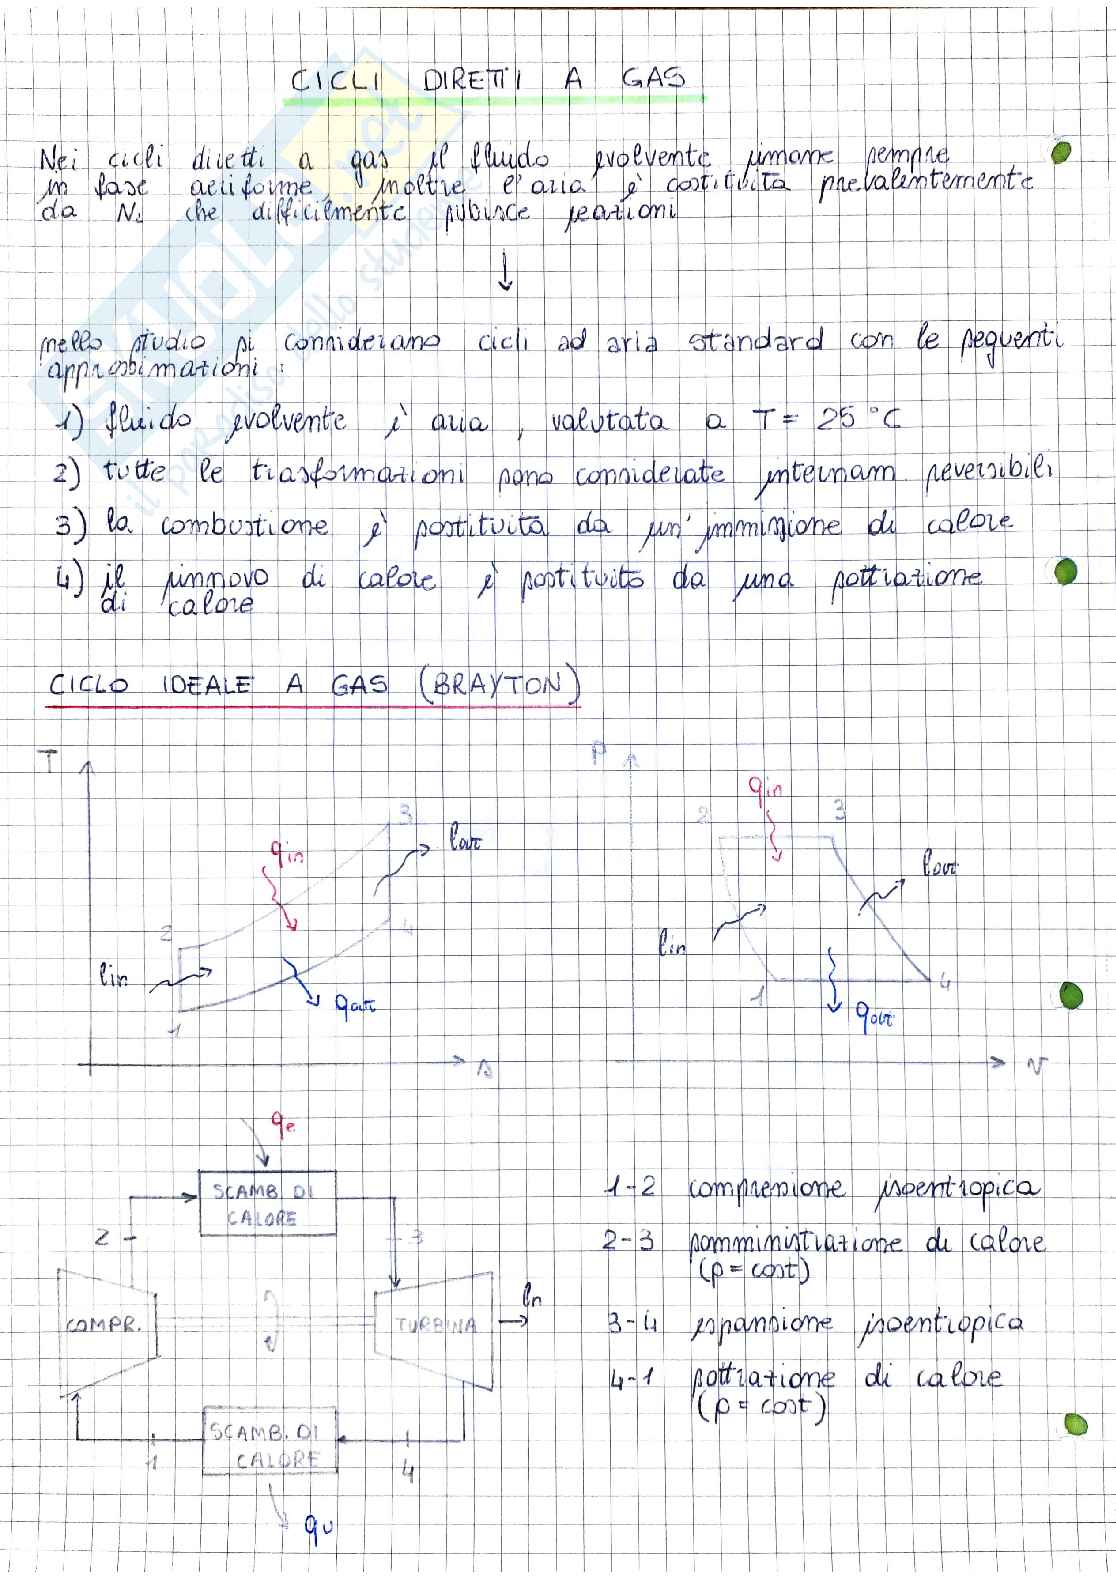 CICLI DIRETTI A GAS
Nei cicli diretti a gas il fluido evolvente rimane sempre
in fase aeriforme, inoltre l'aria è costituita prevalentemente
da N₂ che difficilmente subisce reazioni
↓
nello studio si considerano cicli ad aria standard con le seguenti
approssimazioni:
1) fluido evolvente è aria, valutata a T = 25 °C
2) tutte le trasformazioni sono considerate internam reversibili
3) la combustione è sostituita da un'immissione di calore
4) il rinnovo di calore è sostituito da una sottrazione
di calore
CICLO IDEALE A GAS (BRAYTON)
T
3
qin
lout
2
4
lin
qout
1
s
P
qin
2
3
lout
lin
1
4
qout
v
qe
SCAMB. DI
CALORE
2
3
COMPR.
TURBINA
ln
SCAMB. DI
CALORE
1
4
qu
1-2 compressione isoentropica
2-3 somministrazione di calore
(p = cost)
3-4 espansione isoentropica
4-1 sottrazione di calore
(p = cost)
SKUOLA.net
il paradiso dello studente